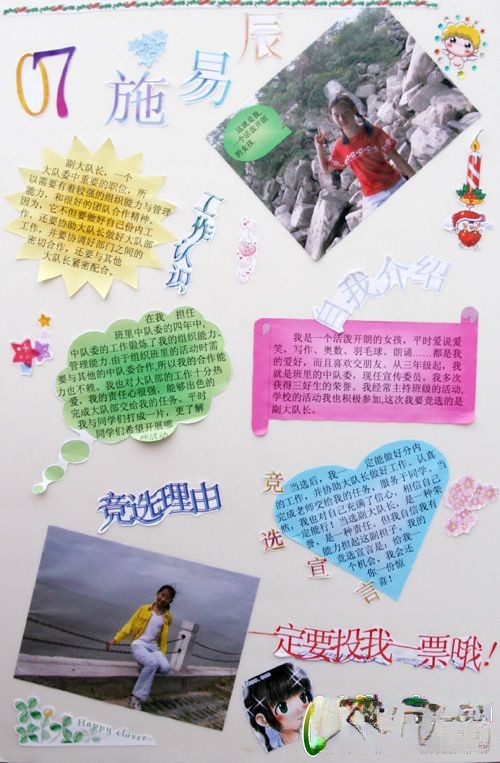 07 施易辰
这就是我,
一个活泼开朗
的女孩.
副大队长,一个
大队委中重要的职位,所
以需要有着较强的组织能力与管理
能力,和很好的团队合作精神。
因为,它不但要做好自己份内工
作,还要协助大队长做好大队部
工作,并要协调好部门之间的
密切合作,还要与其他
大队长紧密配合。
工作认识
自我介绍
我是一个活泼开朗的女孩,平时爱说爱
笑,写作、奥数、羽毛球、朗诵……都是我
的爱好,而且喜欢交朋友。从三年级起,我
就是班里的中队委,现任宣传委员。我多次
获得三好生的荣誉。我经常主持班级的活动,
学校的活动我也积极参加,这次我要竞选的是
副大队长。
在我 担任
班里中队委的四年中,
中队委的工作锻炼了我的组织能力、
管理能力.由于组织班里的活动时需
要与其他的中队委合作,所以我的合作能
力也不赖。我也对大队部的工作十分热
爱,我的责任心很强,能够出色的
完成大队部交给我的任务。平时
我与同学们打成一片,更了解
同学们希望开展哪
些活动
竞选理由
竞选宣言
当选后,我一 定能做好分内
的工作,并协助大队长做好工作。认真
完成老师交给我的任务,服务于同学。当
然,我也对自己充满了信心,相信自己
一定能行!当选副大队长,是一种荣
誉,是一种责任。但我自信我有
能力担起这副担子。我的
竞选宣言是:给我一
个机会,我会还
你一份惊
喜!
一定要投我一票哦!
Happy clover